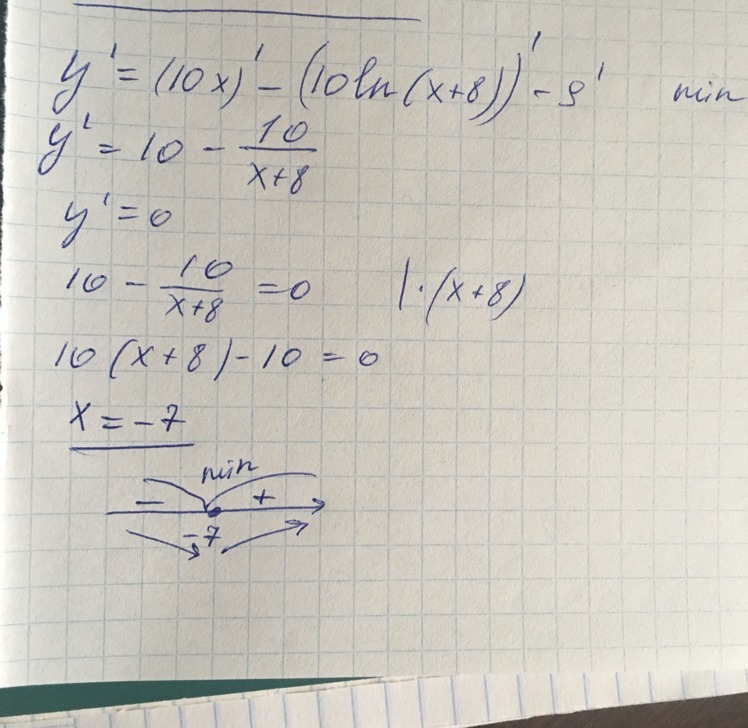 y' = (10x)' - (10ln(x+8))' - 9' min
y' = 10 - 10/(x+8)
y' = 0
10 - 10/(x+8) = 0 |·(x+8)
10(x+8)-10 = 0
x = -7
min
- +
-7